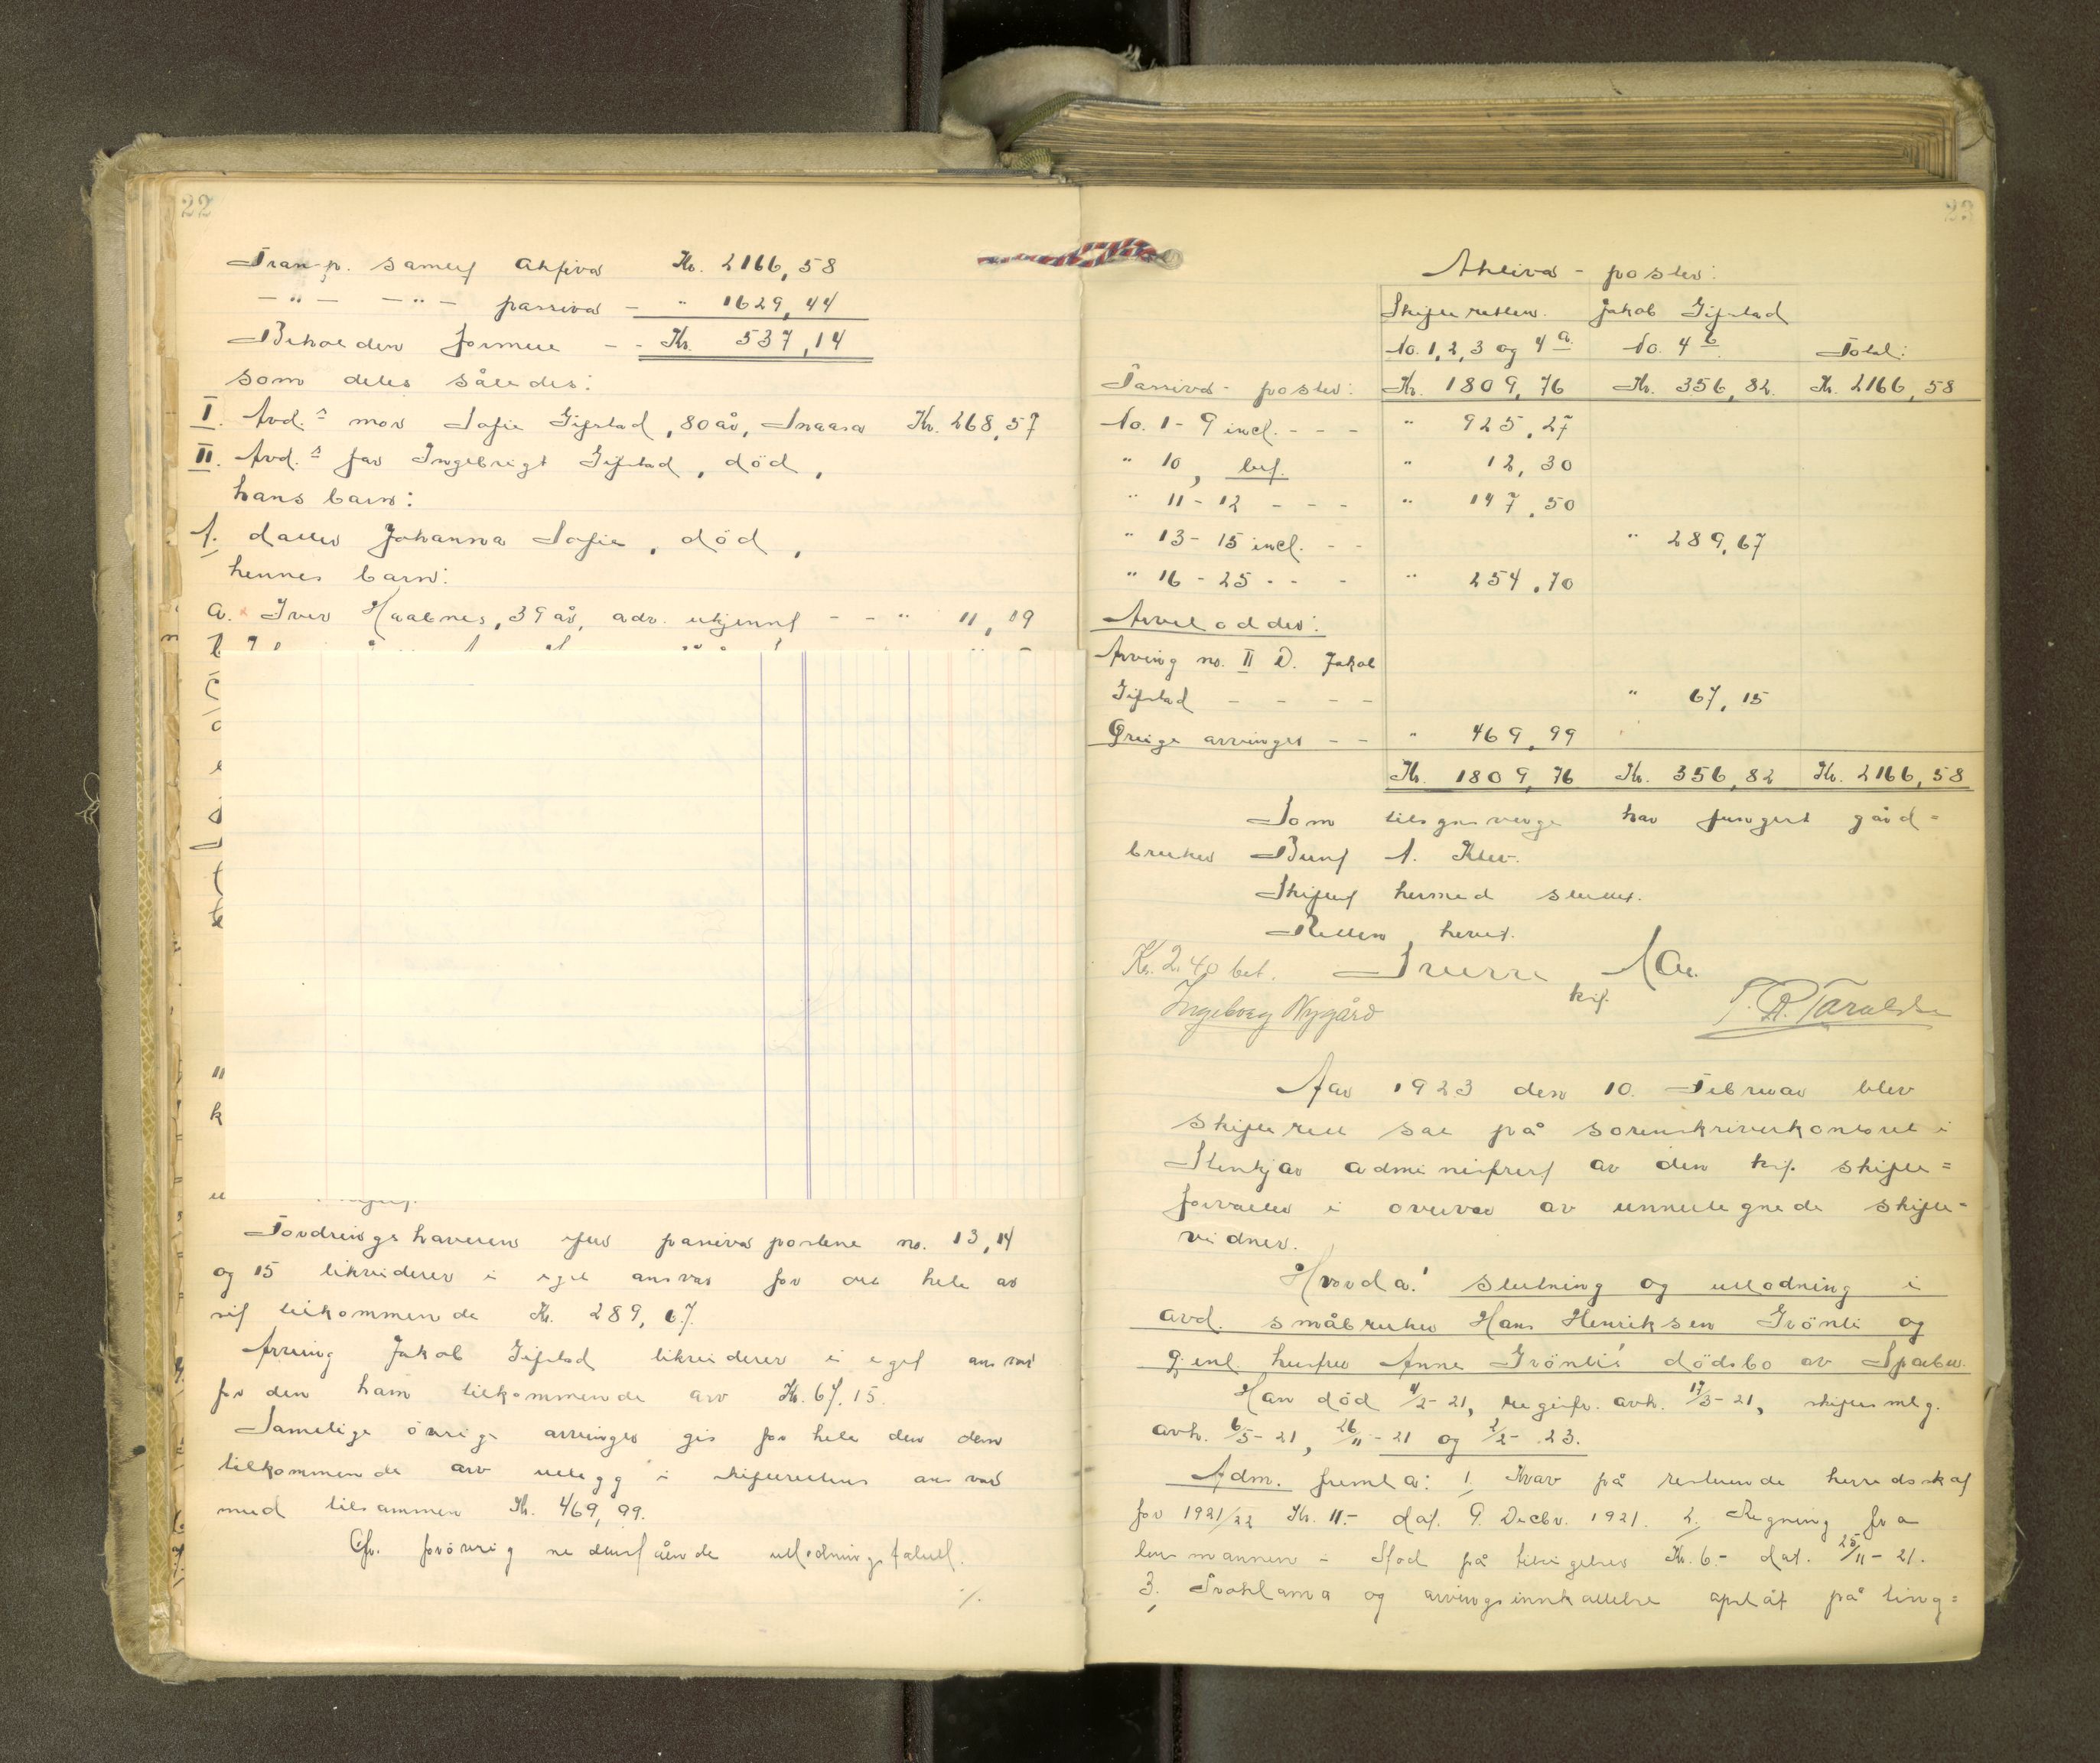 22
Transp. samlet aktiva Kr. 2166,58
- " - - " - passiva - " 1629,44
Beholden formue - - Kr. 537,14
som deles således:
I. Avd.s mor Sofie Gifstad, 80 år, Snaasa Kr. 268,57
II. Avd.s far Ingebrigt Gifstad, död,
hans barn:
A. datter Johanna Sofie, död,
hennes barn:
a. Iver Haabnes, 39 år, adr. ukjennt - - " 11,19
Fordringshaveren efter passivapostene no. 13, 14
og 15 likviderer i eget ansvar for det hele av
sit tilkommende Kr. 289,67.
Arving Jakob Gifstad likviderer i eget ansvar
for den ham tilkommende arv Kr. 67,15.
Samtlige övrige arvinger gis for hele den dem
tilkommende arv utlegg i skifterettens ansvar
med tilsammen Kr. 469,99.
Cfr. forövrig nedenståënde utlodningstabell.
./.
23
Aktiva - poster:
Skifteretten. Jakob Gifstad
No. 1, 2, 3 og 4 a. No. 4 b. Total:
Passiva - poster: Kr. 1809,76 Kr. 356,82. Kr. 2166,58
No. 1 - 9 incl. - - - " 925,27
" 10, bet. " 12,30
" 11 - 12 - - - " 147,50
" 13 - 15 incl. - - " 289,67
" 16 - 25 - - - " 254,70
Arvelodder:
Arving no. II D. Jakob
Gifstad - - - - " 67,15
Övrige arvinger - - " 469,99
Kr. 1809,76 Kr. 356,82 Kr. 2166,58
Som tilsynsverge har fungert gård=
bruker Bent A. Klev.
Skiftet hermed sluttet.
Retten hevet.
Kr. 2.40 bet. Sverre Aa.
kst.
Ingeborg Nygård T. A. Taraldsen
Aar 1923 den 10. Februar blev
skifterett sat på sorenskriverkontoret i
Stenkjær administrert av den kst. skifte=
forvalter i overvær av unnertegnede skifte-
vidner.
Hvorda: slutning og utlodning i
avd. småbruker Hans Henriksen Grönli og
g.enl. hustru Anne Grönli's dödsbo av Sparbu.
Han död 4/2-21, registr. avh. 17/3-21, skiftesmlg.
avh. 6/5-21, 26/11-21 og 2/2-23.
Adm. freml a: 1. Krav på resterende herredskat
for 1921/22 Kr. 11.- dat. 9. Decbr. 1921. 2. Regning fra
lensmannen i Stod på tilsigelser Kr. 6.- dat. 25/11-21.
3. Proklama og arvingsinnkallelse oplæst på ting=